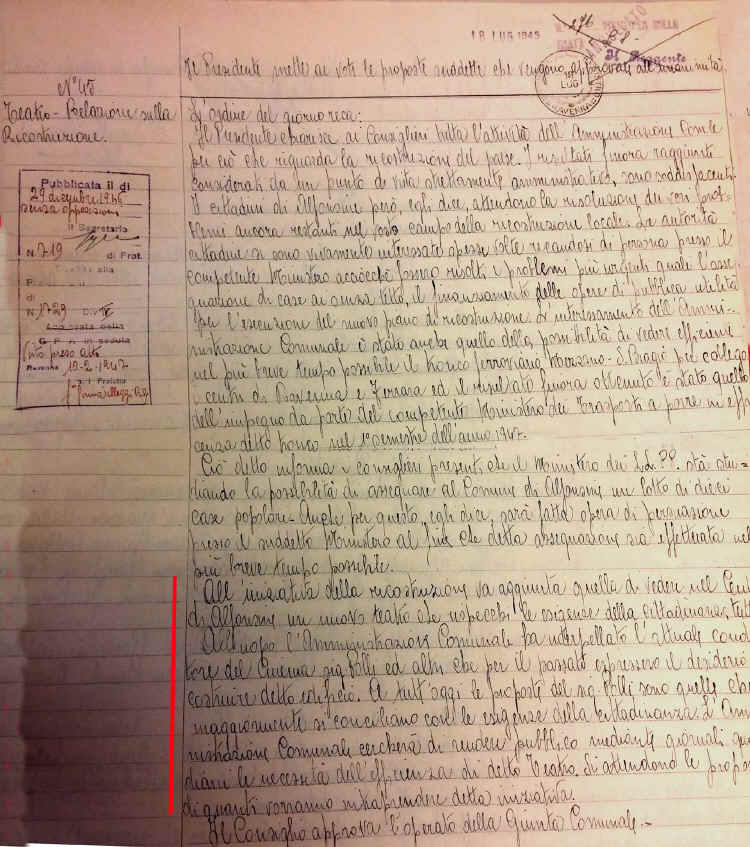 18 LUG 1945
N. 276
Il Presidente mette ai voti le proposte suddette che vengono approvate all'unanimità.
N° 45
Teatro - Relazione sulla
Ricostruzione.
Pubblicata il dì
29 dicembre 1946
senza opposizioni
Il Segretario
N. 719 di Prot.
di
N. 1729 Div. IV
G P A in seduta
Visto preso atto
Ravenna 10-2-1947
p. Il Prefetto
L'ordine del giorno reca:
Il Presidente espone ai Consiglieri tutta l'attività dell'Amministrazione Com.le
per ciò che riguarda la ricostruzione del paese. I risultati finora raggiunti
considerati da un punto di vista strettamente amministrativo, sono soddisfacenti.
I cittadini di Alfonsine però, egli dice, attendono la risoluzione dei vari prob-
lemi ancora restanti nel vasto campo della ricostruzione locale. Le autorità
cittadine si sono vivamente interessate spesse volte recandosi di persona presso il
competente Ministero acciocchè fossero risolti i problemi più urgenti quali l'asse-
gnazione di case ai senza tetto, il finanziamento delle opere di pubblica utilità
per l'esecuzione del nuovo piano di ricostruzione. L'interessamento dell'Ammi-
nistrazione Comunale è stato anche quello della possibilità di vedere efficiente
nel più breve tempo possibile il tronco ferroviario Mezzano-S. Biagio per collega
i centri di Ravenna e Ferrara ed il risultato finora ottenuto è stato quello
dell'impegno da parte del competente Ministero dei Trasporti a porre in effi
cenza detto tronco nel 1° semestre dell'anno 1947.
Ciò detto informa i consiglieri presenti che il Ministero dei LL.PP. sta stu-
diando la possibilità di assegnare al Comune di Alfonsine un lotto di dieci
case popolari. Anche per questo, egli dice, sarà fatta opera di persuasione
presso il suddetto Ministero al fine che detta assegnazione sia effettuata nel
più breve tempo possibile.
All'iniziativa della ricostruzione va aggiunta quella di vedere nel Cen
di Alfonsine un nuovo teatro che rispecchi le esigenze della cittadinanza tutt
All'uopo l'Amministrazione Comunale ha interpellato l'attuale condut
tore del Cinema sig. ed altri che per il passato espressero il desiderio
costruire detto edificio. A tutt'oggi le proposte del sig. sono quelle che
maggiormente si conciliano con le esigenze della cittadinanza. L'Am
nistrazione Comunale cercherà di rendere pubblico mediante giornali quo
diani le necessità dell'efficenza di detto Teatro. Si attendono le propos
di quanti vorranno intraprendere detta iniziativa.
Il Consiglio approva l'operato della Giunta Comunale.-